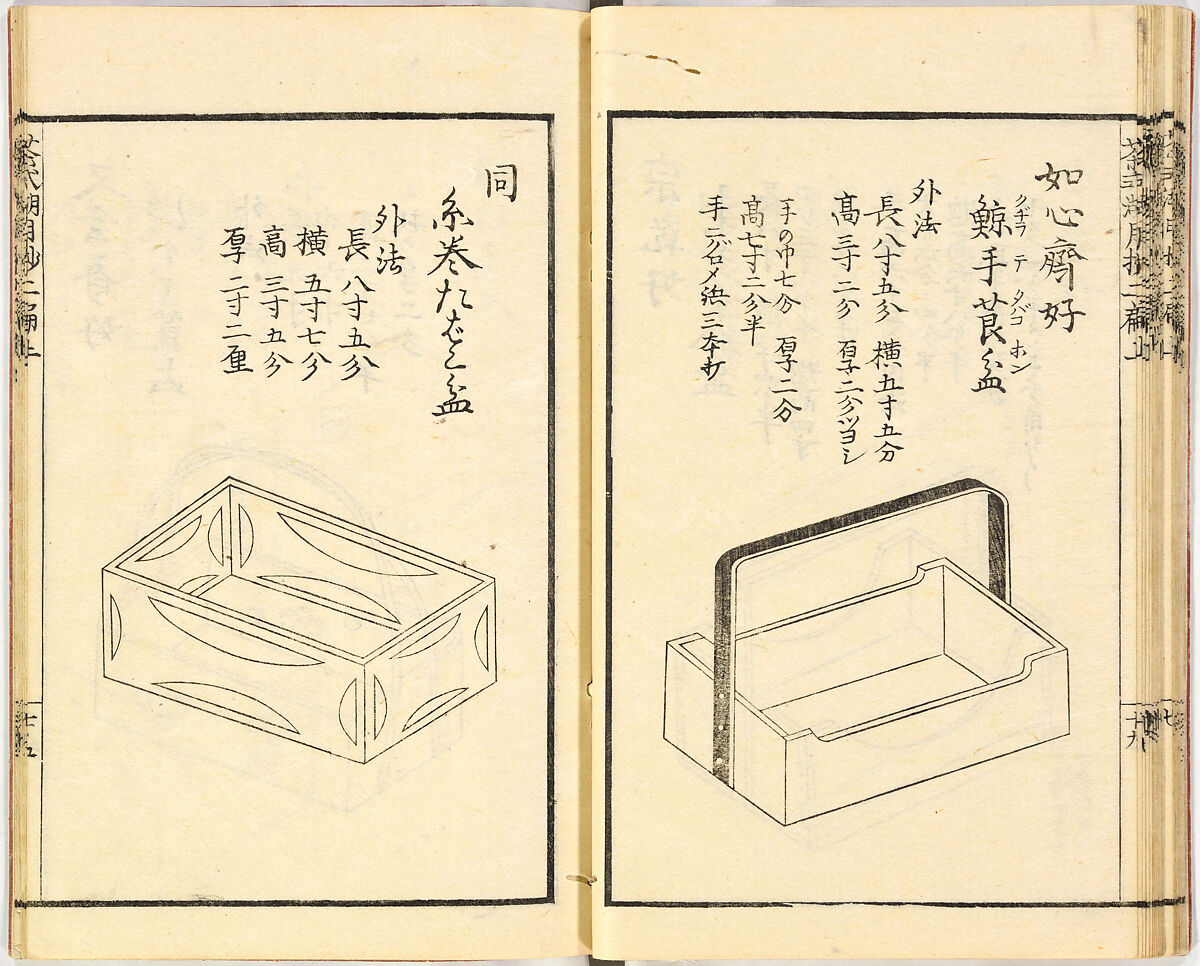 如心齋好
鯨手莨盆
クギラ テ タバコ ホン
外法
長八寸五分 横五寸五分
高三寸二分 厚二分ツヨシ
手の巾七分 厚二分
高七寸二分半
手ニグロメ鋲三本打
同
糸巻たばこ盆
外法
長八寸五分
横五寸七分
高三寸五分
厚二寸二厘